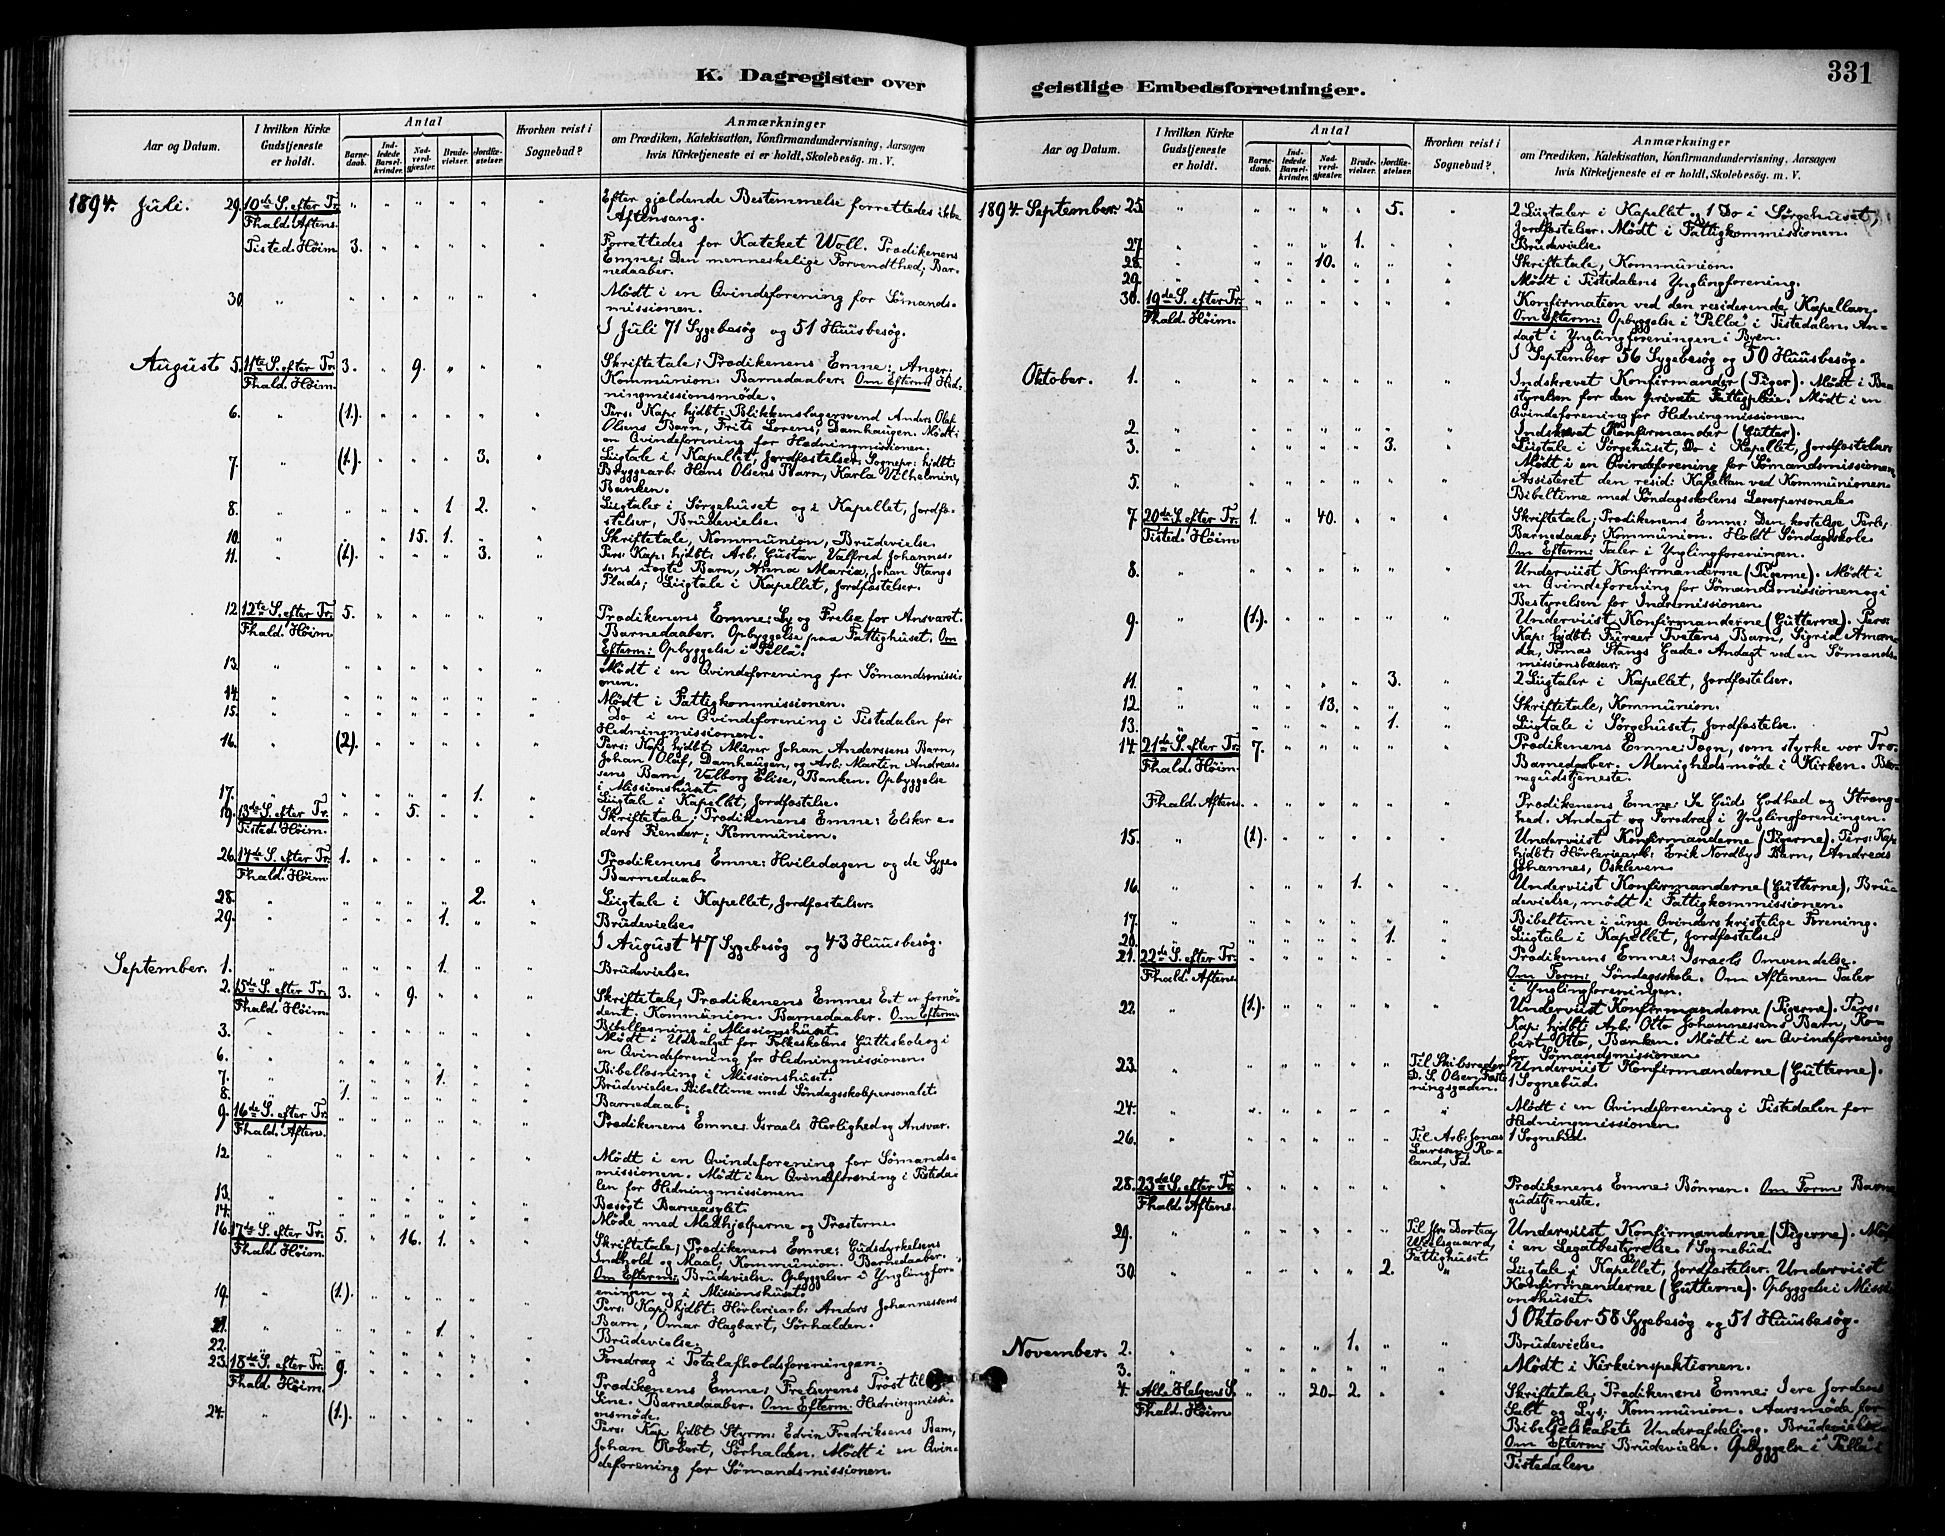 K. Dagregister over
Aar og Datum.
I hvilken Kirke
Gudstjeneste
er holdt.
Antal
Barne-
daab.
Ind-
ledede
Barsel-
kvinder.
Nad-
verd-
gjæster.
Brude-
vielser.
Jordfæ-
stelser.
Hvorhen reist i
Sognebud?
Anmærkninger
om Prædiken, Katekisation, Konfirmandundervisning, Aarsagen
hvis Kirketjeneste ei er holdt, Skolebesøg. m. V.
1894. Juli. 29. 10de S. efter Tr. " " " " " " Efter gjældende Bestemmelse forrettedes ikke
Fhald. Aftens. Aftensang.
Tisted. Høim. 3. " " " " " Forrettedes for Kateket Woll. Prædikenens
Emne: Den menneskelige Forvendthed, Bar-
nedaaber.
30. " " " " " " " Mødt i en Qvindeforening for Sømands-
missionen.
I Juli 71 Sygebesøg og 51 Huusbesøg.
August 5. 11te S. efter Tr. 3. " 9. " " " Skriftetale; Prædikenens Emne: Anger;
Fhald. Høim. Kommunion. Barnedaaber. Om Efterm: Hed-
ningmissionsmøde.
6. " (1). " " " " " Pers: Kap: hjdbt: Blikkenslagersvend Anders Olaf
Olsens Barn, Frits Lorens, Damhaugen. Mødt i
en Qvindeforening for Hedningmissionen.
7. " (1). " " " 3. " Liigtale i Kapellet, Jordfæstelser. Sognepr: hjdbt:
Bryggearb: Hans Olsens Barn, Karla Vilhelmine,
Banken.
8. " " " " 1 2. " Liigtaler i Sørgehuset og i Kapellet, Jordfæ-
stelser, Brudevielse.
10. " " " 15. 1. " " Skriftetale, Kommunion, Brudevielse.
11. " (1). " " " 3. " Pers: Kap: hjdbt: Arb: Gustav Valfred Johannes-
sens uægte Barn, Anna Maria, Johan Stangs
Plads; Liigtale i Kapellet, Jordfæstelser.
12. 12te S. efter Tr. 5. " " " " " Prædikenens Emne: Ly og Frelse for Ansvaret.
Fhald. Høim. Barnedaaber. Opbyggelse paa Fattighuset. Om
Efterm: Opbyggelse i "Pella".
13. " " " " " " " Mødt i en Qvindeforening for Sømandsmissi-
onen.
14. " " " " " " " Mødt i Fattigkommissionen.
15. " " " " " " " Do i en Qvindeforening i Tistedalen for
Hedningmissionen.
16. " (2). " " " " " Pers: Kap: hjdbt: Murer Johan Anderssens Barn,
Johan Oluf, Damhaugen, og Arb: Martin Andreas-
sens Barn, Valborg Elise, Banken. Opbyggelse
i Missionshuset.
17. " " " " " 1. " Liigtale i Kapellet, Jordfæstelse.
19. 13de S. efter Tr. " " 5. " " " Skriftetale; Prædikenens Emne: Elsker e-
Tisted. Høim. ders Fiender; Kommunion.
26. 14de S. efter Tr. 1. " " " " " Prædikenens Emne: Hviledagen og de Syge.
Fhald. Høim. Barnedaab.
28. " " " " " 2. " Liigtale i Kapellet, Jordfæstelser.
29. " " " " 1. " " Brudevielse.
I August 47 Sygebesøg og 43 Huusbesøg.
September. 1. " " " " 1. " " Brudevielse.
2. 15de S. efter Tr. 3. " 9. " " " Skriftetale; Prædikenens Emne: Eet er fornø-
Fhald. Høim. dent; Kommunion. Barnedaaber. Om Efterm:
Bibellæsning i Missionshuset.
3. " " " " " " " Mødt i Udvalget for Folkeskolens Gutteskole og i
en Qvindeforening for Hedningmissionen.
6. " " " " " " " Bibellæsning i Missionshuset.
7. " " " " 1. " " Brudevielse. Bibeltime med Søndagsskolepersonalet.
8. " 1. " " " " " Barnedaab.
9. 16de S. efter Tr. " " " " " " Prædikenens Emne: Israels Herlighed og Ansvar.
Fhald. Aftens.
12. " " " " " " " Mødt i en Qvindeforening for Sømands-
missionen. Mødt i en Qvindeforening i Tisteda-
len for Hedningmissionen.
13. " " " " " " " Besøgt Barneasylet.
14. " " " " " " " Møde med Medhjelperne og Præsterne.
16. 17de S. efter Tr. 5. " 16. 1. " " Skriftetale; Prædikenens Emne: Gudsdyrkelsens
Fhald. Høim. Indhold og Maal; Kommunion. Barnedaaber.
Om Efterm: Brudevielse. Opbyggelser i Ynglingfor-
eningen og i Missionshuset.
19. " (1). " " " " " Pers: Kap: hjdbt: Høvleriearb: Anders Johannessens
Barn, Omar Hagbart, Sørhalden.
21. " " " " 1. " " Brudevielse.
22. " " " " " " " Foredrag i Totalafholdsforeningen.
23. 18de S. efter Tr. 9. " " " " " Prædikenens Emne: Frelserens Trøst til
Fhald. Høim. Sine. Barnedaaber. Om Efterm: Hedningmissi-
onsmøde.
24. " (1). " " " " " Pers: Kap: hjdbt: Styrm: Edvin Fredriksens Barn,
Johan Robert, Sørhalden. Mødt i en Qvin-
deforening for Sømandsmissionen.
geistlige Embedsforretninger.
331
Aar og Datum.
I hvilken Kirke
Gudstjeneste
er holdt.
Antal
Barne-
daab.
Ind-
ledede
Barsel-
kvinder.
Nad-
verd-
gjæster.
Brude-
vielser.
Jordfæ-
stelser.
Hvorhen reist i
Sognebud?
Anmærkninger
om Prædiken, Katekisation, Konfirmandundervisning, Aarsagen
hvis Kirketjeneste ei er holdt, Skolebesøg. m. V.
1894. September. 25. " " " " " 5. " 2 Liigtaler i Kapellet og 1 Do i Sørgehuset,
Jordfæstelser. Mødt i Fattigkommissionen.
27. " " " " 1. " " Brudevielse.
28. " " " 10. " " " Skriftetale, Kommunion.
29. " " " " " " " Mødt i Tistedalens Ynglingforening.
30. 19de S. efter Tr. " " " " " " Konfirmation ved den residerende Kapellan.
Fhald. Høim. Om Efterm: Opbyggelse i "Pella" i Tistedalen. An-
dagt i Ynglingforeningen i Byen.
I September 56 Sygebesøg og 50 Huusbesøg.
Oktober. 1. " " " " " " " Indskrevet Konfirmander (Piger). Mødt i Be-
styrelsen for den private Fattigpleie. Mødt i en
Qvindeforening for Hedningmissionen.
2. " " " " " " " Indskrevet Konfirmander (Gutter).
3. " " " " " 3. " Liigtale i Sørgehuset, Do i Kapellet, Jordfæstelser.
Mødt i en Qvindeforening for Sømandsmissionen.
5. " " " " " " " Assisteret den resid: Kapellan ved Kommunionen.
Bibeltime med Søndagsskolens Lærerpersonale.
7. 20de S. efter Tr. 1. " 40. " " " Skriftetale; Prædikenens Emne: Den kostelige Perle;
Tisted. Høim. Barnedaab; Kommunion. Holdt Søndagsskole.
Om Efterm: Taler i Ynglingforeningen.
8. " " " " " " " Underviist Konfirmanderne (Pigerne). Mødt i
en Qvindeforening for Sømandsmissionen og i
Bestyrelsen for Indremissionen.
9. " (1). " " " " " Underviist Konfirmanderne (Gutterne). Pers:
Kap: hjdbt: Furer Tvetens Barn, Sigrid Aman-
da, Tomas Stangs Gade. Andagt ved en Sømands-
missionsbasar.
11. " " " " " 3. " 2 Liigtaler i Kapellet, Jordfæstelser.
12. " " " 13. " " " Skriftetale, Kommunion.
13. " " " " " 1. " Liigtale i Sørgehuset, Jordfæstelse.
14. 21de S. efter Tr. 7. " " " " " Prædikenens Emne: Tegn, som styrke vor Tro.
Fhald. Høim. Barnedaaber. Menighedsmøde i Kirken. Bør-
negudstjeneste.
Fhald. Aftens. " " " " " " Prædikenens Emne: Se Guds Godhed og Streng-
hed. Andagt og Foredrag i Ynglingforeningen.
15. " (1). " " " " " Underviist Konfirmanderne (Pigerne). Pers: Kap:
hjdbt: Høvleriearb: Erik Nordbys Barn, Andreas
Johannes, Oskleven.
16. " " " " 1. " " Underviist Konfirmanderne (Gutterne), Bru-
devielse, mødt i Fattigkommissionen.
17. " " " " " " " Bibeltime i unge Qvinders kristelige Forening.
20. " " " " " 1. " Liigtale i Kapellet, Jordfæstelse.
21. 22de S. efter Tr. " " " " " " Prædikenens Emne: Israels Omvendelse.
Fhald. Aftens. Om Form: Søndagsskole. Om Aftenen Taler
i Ynglingforeningen.
22. " (1). " " " " " Underviist Konfirmanderne (Pigerne). Pers:
Kap: hjdbt: Arb: Otto Johannessens Barn, Ro-
bert Otto, Banken. Mødt i en Qvindeforening
for Sømandsmissionen.
23. " " " " " " Til Skibsreder Underviist Konfirmanderne (Gutterne).
D. S. Olsen, Fæst- 1 Sognebud.
ningsgaden.
24. " " " " " " " Mødt i en Qvindeforening i Tistedalen for
Hedningmissionen.
26. " " " " " " Til Arb: Jonas 1 Sognebud.
Larssen Ro-
land, Id.
28. 23de S. efter Tr. " " " " " " Prædikenens Emne: Bønnen. Om Form: Barne-
Fhald. Aftens. gudstjeneste.
29. " " " " " " Til frv. Dortea Underviist Konfirmanderne (Pigerne). Mødt
Welsgaard, i en Legatbestyrelse. 1 Sognebud.
Fattighuset.
30. " " " " " 2. " Liigtale i Kapellet, Jordfæstelser. Underviist
Konfirmanderne (Gutterne). Opbyggelse i Missi-
onshuset.
I Oktober 58 Sygebesøg og 51 Huusbesøg.
November. 2. " " " " 1. " " Brudevielse.
3. " " " " " " " Mødt i Kirkeinspektionen.
4. Alle Helgens S. " " 20. 2. " " Skriftetale; Prædikenens Emne: I ere Jordens
Fhald. Høim. Salt og Lys; Kommunion. Aarsmøde for
Bibelselskabets Underafdeling. Brudevielse.
Om Efterm: Brudevielse. Opbyggelse i "Pella" i
Tistedalen.